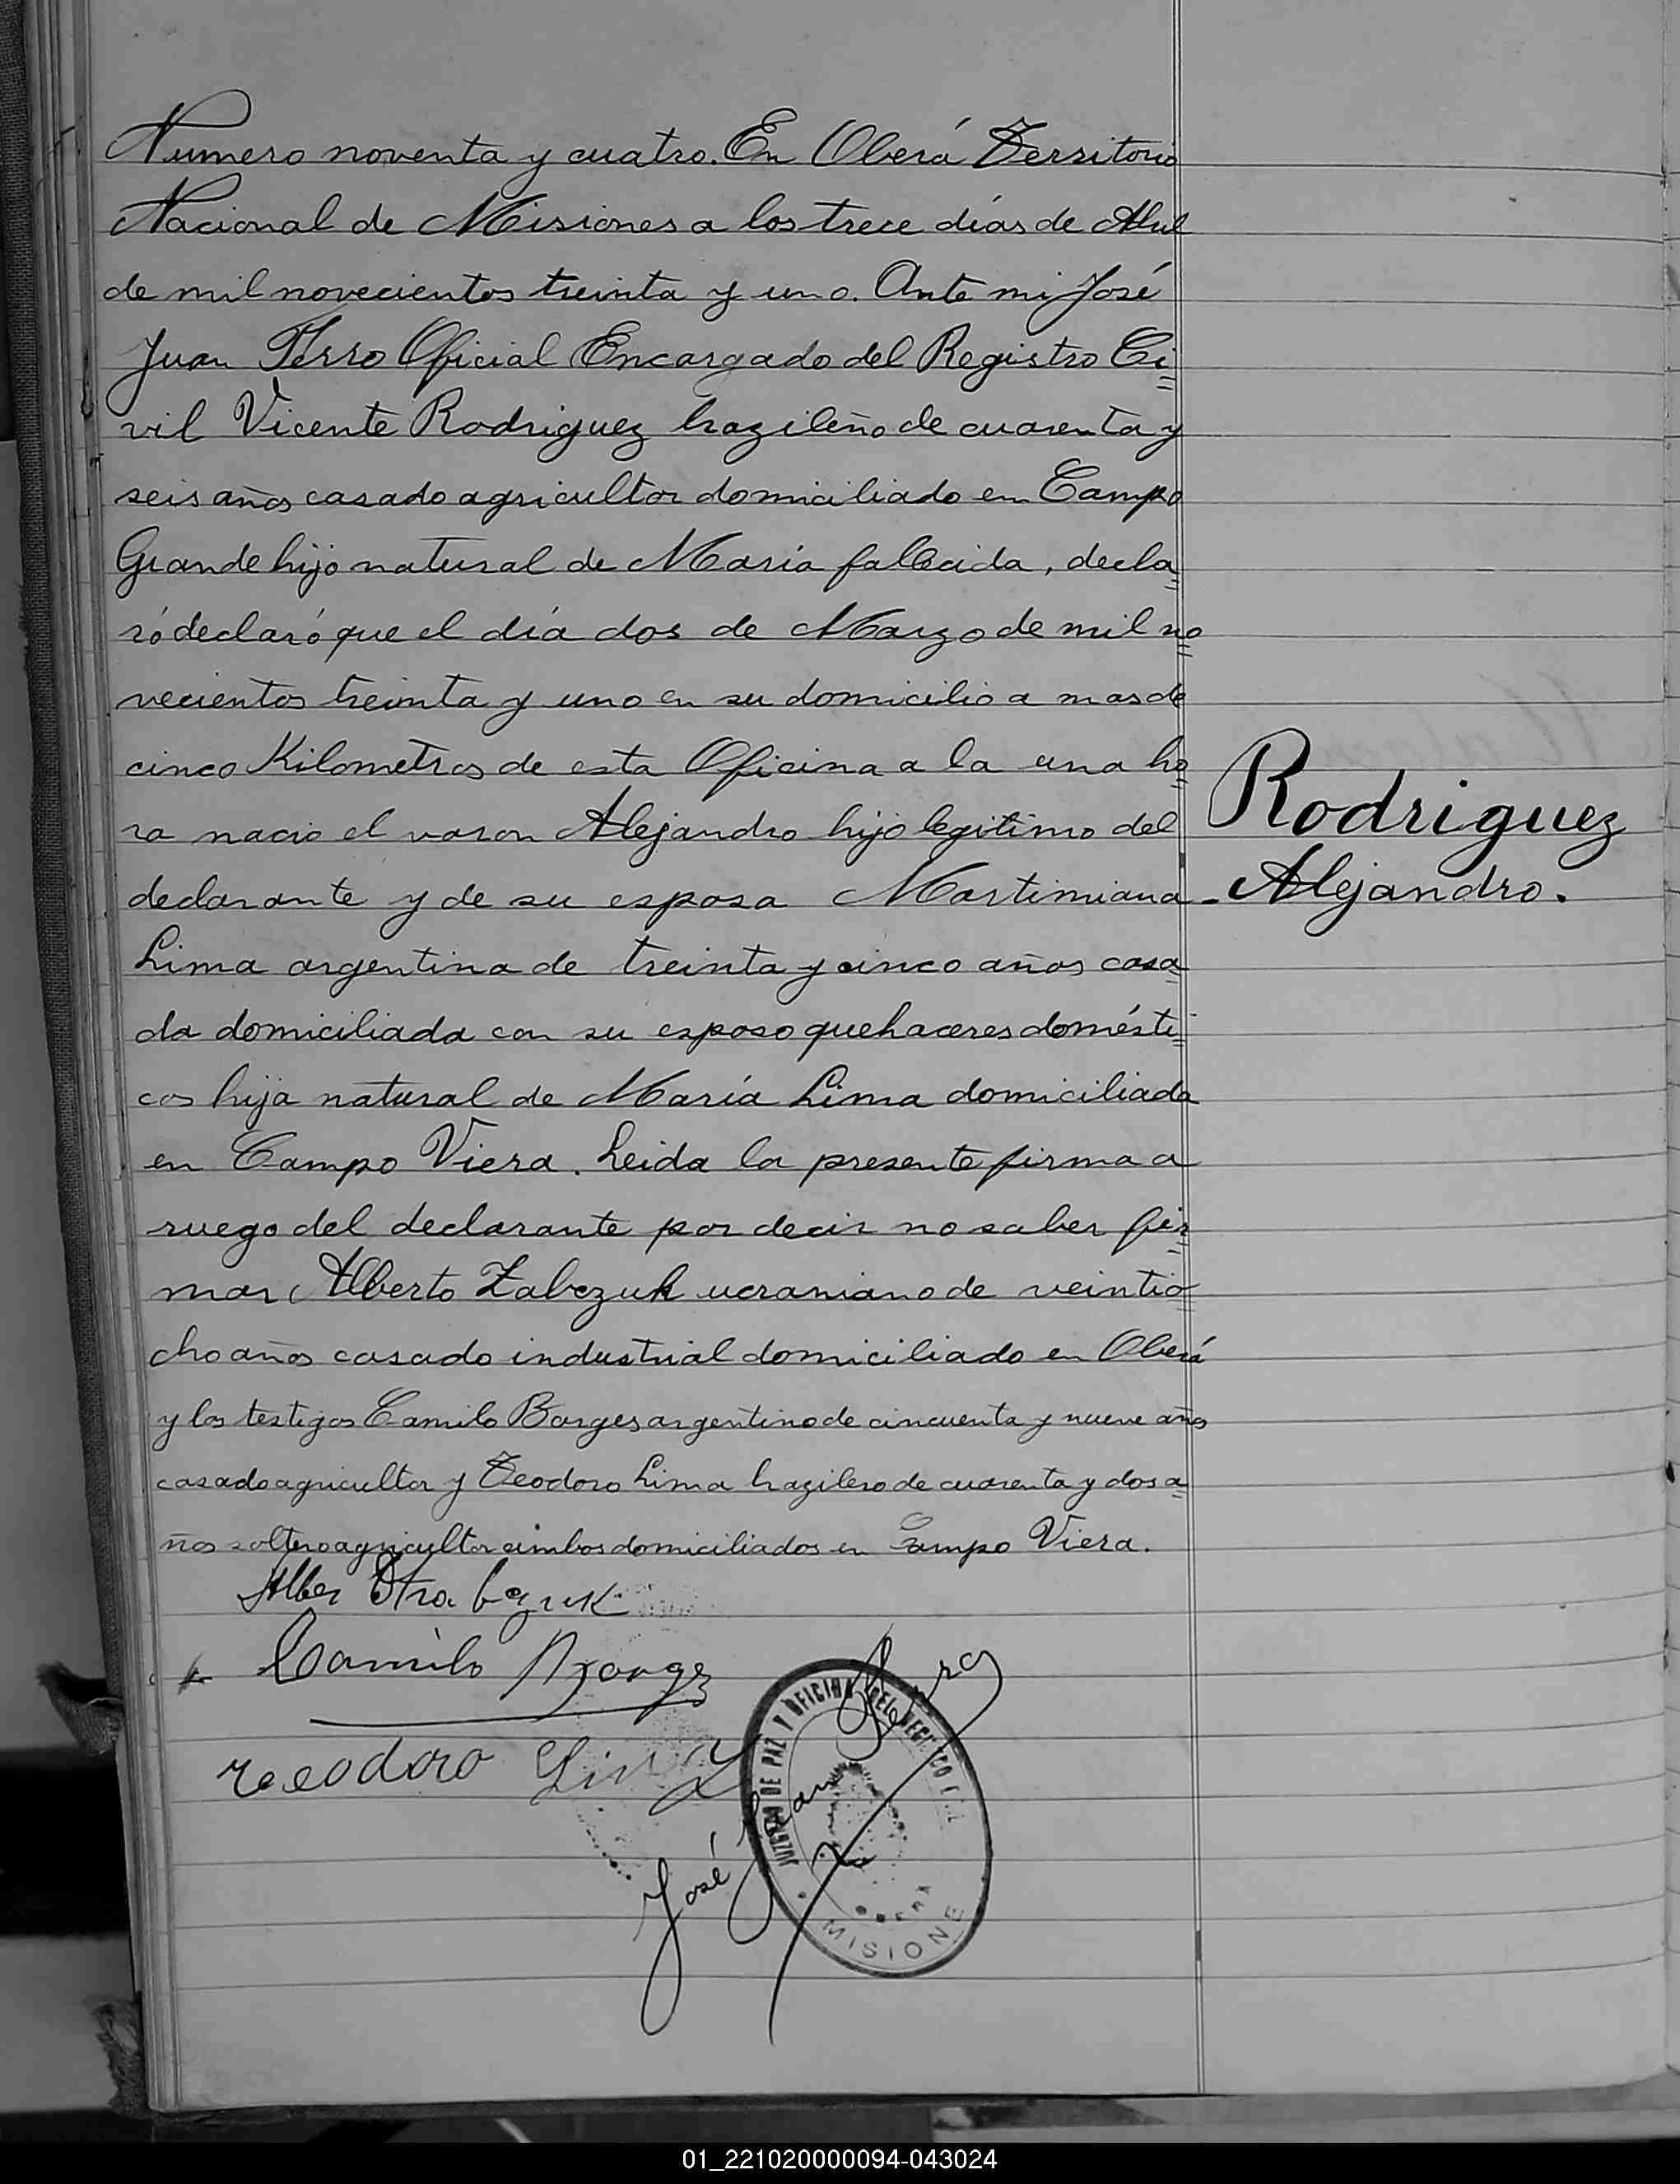 Numero noventa y cuatro. En Oberá Territorio
Nacional de Misiones a los trece días de Abril
de mil novecientos treinta y uno. Ante mi José
Juan Ferro Oficial Encargado del Registro Ci=
vil Vicente Rodriguez brazileño de cuarenta y
seis años casado agricultor domiciliado en Campo
Grande hijo natural de María fallecida, decla=
ró declaró que el día dos de Marzo de mil no=
vecientos treinta y uno en su domicilio a mas de
cinco Kilometros de esta Oficina a la una ho=
ra nació el varon Alejandro hijo legitimo del
declarante y de su esposa Martimiana
Rodriguez
Alejandro.
Lima argentina de treinta y cinco años casa=
da domiciliada con su esposo quehaceres domésti=
cos hija natural de María Lima domiciliada
en Campo Viera. Leida la presente firma a
ruego del declarante por decir no saber fir=
mar Alberto Zabczuk ucraniano de veintio=
cho años casado industrial domiciliado en Oberá
y los testigos Camilo Borges argentino de cincuenta y nueve años
casado agricultor y Teodoro Lima brazilero de cuarenta y dos a=
ños soltero agricultor ambos domiciliados en Campo Viera.
Camilo Borges
Teodoro Lima
José Juan Ferro
JUZGADO DE PAZ Y OFICINA DEL REGISTRO CIVIL
OBERA
MISIONES
01_221020000094-043024